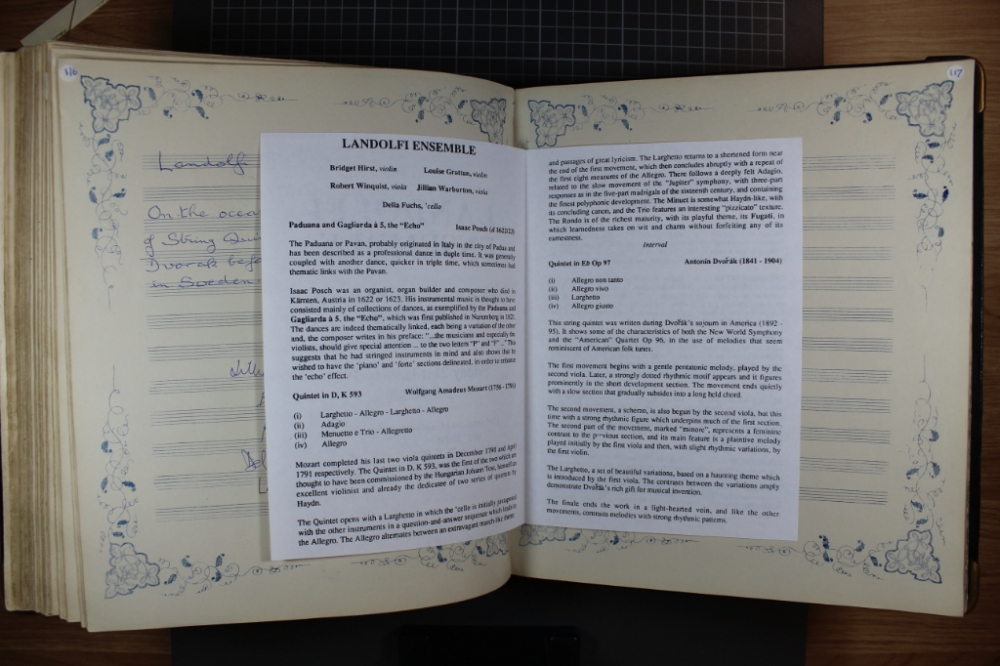 116
117
Landolf
On the occa
of String Qui
Dvorak befo
in Sweden
LANDOLFI ENSEMBLE
Bridget Hirst, violin Louise Grattan, violin
Robert Winquist, viola Jillian Warburton, viola
Delia Fuchs, 'cello
Paduana and Gagliarda à 5, the "Echo" Isaac Posch (d 1622/23)
The Paduana or Pavan, probably originated in Italy in the city of Padua and
has been described as a professional dance in duple time. It was generally
coupled with another dance, quicker in triple time, which sometimes had
thematic links with the Pavan.
Isaac Posch was an organist, organ builder and composer who died in
Kärnten, Austria in 1622 or 1623. His instrumental music is thought to have
consisted mainly of collections of dances, as exemplified by the Paduana and
Gagliarda à 5, the "Echo", which was first published in Nuremberg in 1621.
The dances are indeed thematically linked, each being a variation of the other
and, the composer writes in his preface: "...the musicians and especially the
violists, should give special attention ... to the two letters "P" and "F" .." This
suggests that he had stringed instruments in mind and also shows that he
wished to have the 'piano' and 'forte' sections delineated, in order to enhance
the 'echo' effect.
Quintet in D, K 593 Wolfgang Amadeus Mozart (1756 - 1791)
(i) Larghetto - Allegro - Larghetto - Allegro
(ii) Adagio
(iii) Menuetto e Trio - Allegretto
(iv) Allegro
Mozart completed his last two viola quintets in December 1790 and April
1791 respectively. The Quintet in D, K 593, was the first of the two which are
thought to have been commissioned by the Hungarian Johann Tost, himself an
excellent violinist and already the dedicatee of two series of quartets by
Haydn.
The Quintet opens with a Larghetto in which the 'cello is initially juxtaposed
with the other instruments in a question-and-answer sequence which leads to
the Allegro. The Allegro alternates between an extravagant march like theme
and passages of great lyricism. The Larghetto returns to a shortened form near
the end of the first movement, which then concludes abruptly with a repeat of
the first eight measures of the Allegro. There follows a deeply felt Adagio,
related to the slow movement of the "Jupiter" symphony, with three-part
responses as in the five-part madrigals of the sixteenth century, and containing
the finest polyphonic development. The Minuet is somewhat Haydn-like, with
its concluding canon, and the Trio features an interesting "pizzicato" texture.
The Rondo is of the richest maturity, with its playful theme, its Fugati, in
which learnedness takes on wit and charm without forfeiting any of its
earnestness.
Interval
Quintet in Eb Op 97 Antonín Dvořák (1841 - 1904)
(i) Allegro non tanto
(ii) Allegro vivo
(iii) Larghetto
(iv) Allegro giusto
This string quintet was written during Dvořák's sojourn in America (1892 -
95). It shows some of the characteristics of both the New World Symphony
and the "American" Quartet Op 96, in the use of melodies that seem
reminiscent of American folk tunes.
The first movement begins with a gentle pentatonic melody, played by the
second viola. Later, a strongly dotted rhythmic motif appears and it figures
prominently in the short development section. The movement ends quietly
with a slow section that gradually subsides into a long held chord.
The second movement, a scherzo, is also begun by the second viola, but this
time with a strong rhythmic figure which underpins much of the first section.
The second part of the movement, marked "minore", represents a feminine
contrast to the previous section, and its main feature is a plaintive melody
played initially by the first viola and then, with slight rhythmic variations, by
the first violin.
The Larghetto, a set of beautiful variations, based on a haunting theme which
is introduced by the first viola. The contrasts between the variations amply
demonstrate Dvořák's rich gift for musical invention.
The finale ends the work in a light-hearted vein, and like the other
movements, contrasts melodies with strong rhythmic patterns.